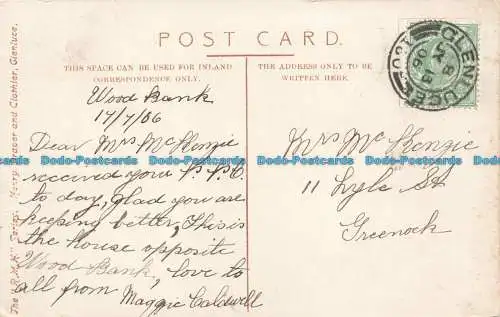 POST CARD.
THIS SPACE CAN BE USED FOR INLAND
CORRESPONDENCE ONLY.
THE ADDRESS ONLY TO BE
WRITTEN HERE.
GLENLUCE
Wood Bank
17/7/06
Dear Mrs McKenzie
received your P. P. C
to day, glad you are
keeping better, This is
the house opposite
Wood Bank, love to
all from Maggie Caldwell
Mrs McKenzie
11 Lyle St
Greenock
Draper and Clothier, Glenluce.
Dodo-Postcards Dodo-Postcards Dodo-Postcards Dodo-Postcards
Dodo-Postcards Dodo-Postcards Dodo-Postcards